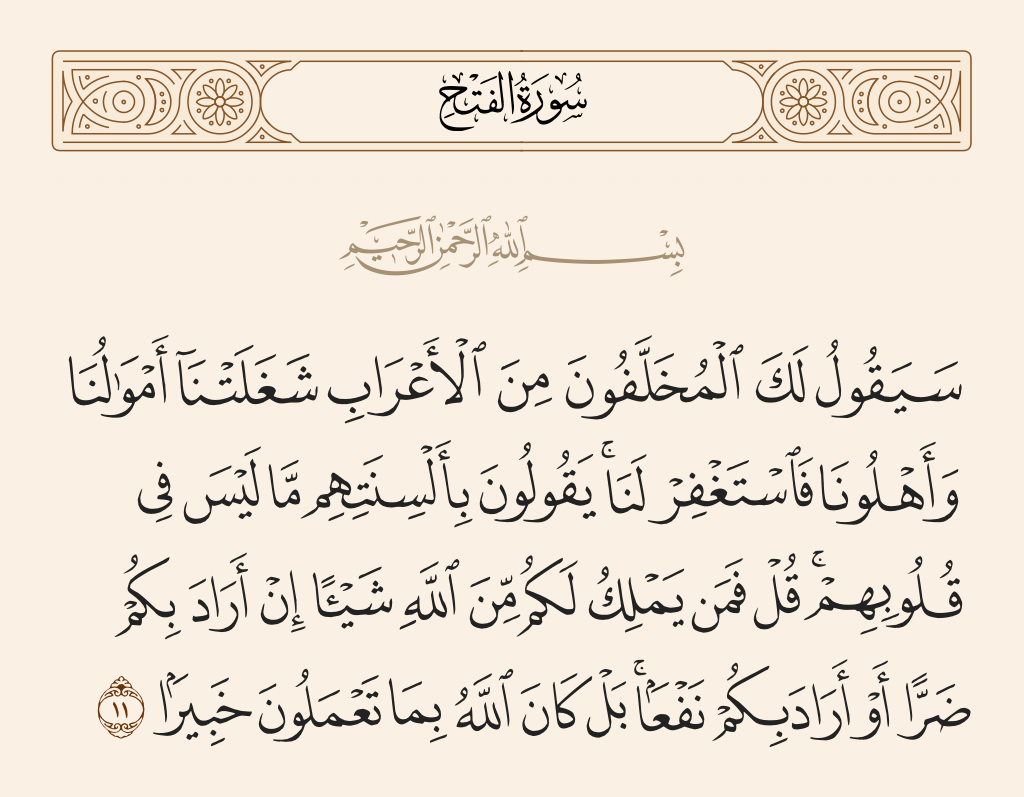 سُورَةُ الفَتْحِ
بِسْمِ ٱللَّهِ ٱلرَّحْمَٰنِ ٱلرَّحِيمِ
سَيَقُولُ لَكَ ٱلْمُخَلَّفُونَ مِنَ ٱلْأَعْرَابِ شَغَلَتْنَآ أَمْوَٰلُنَا
وَأَهْلُونَا فَٱسْتَغْفِرْ لَنَا ۚ يَقُولُونَ بِأَلْسِنَتِهِم مَّا لَيْسَ فِى
قُلُوبِهِمْ ۚ قُلْ فَمَن يَمْلِكُ لَكُم مِّنَ ٱللَّهِ شَيْـًٔا إِنْ أَرَادَ بِكُمْ
ضَرًّا أَوْ أَرَادَ بِكُمْ نَفْعًۢا ۚ بَلْ كَانَ ٱللَّهُ بِمَا تَعْمَلُونَ خَبِيرًۢا ١١